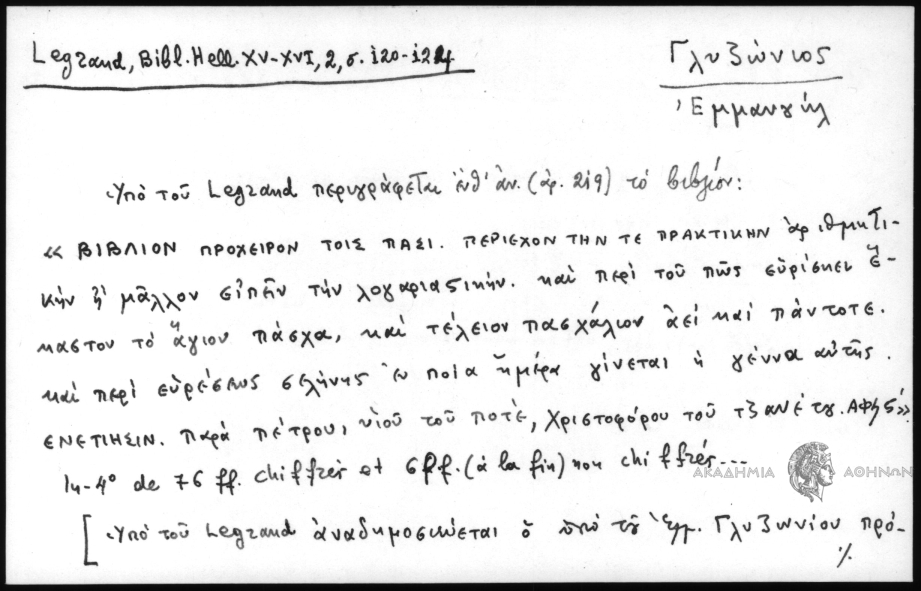 Legrand, Bibl. Hell. XV-XVI, 2, σ. 120-124
Γλυζώνιος
Ἐμμανουήλ
Ὑπὸ τοῦ Legrand περιγράφεται ἐνθ' ἀν. (ἀρ. 219) τὸ βιβλίον:
« ΒΙΒΛΙΟΝ ΠΡΟΧΕΙΡΟΝ ΤΟΙΣ ΠΑΣΙ. ΠΕΡΙΕΧΟΝ ΤΗΝ ΤΕ ΠΡΑΚΤΙΚΗΝ ἀριθμητι-
κὴν ἢ μᾶλλον εἰπεῖν τὴν λογαριαστικήν. καὶ περὶ τοῦ πῶς εὑρίσκει ἕ-
καστον τὸ ἅγιον πάσχα, καὶ τέλειον πασχάλιον ἀεὶ καὶ πάντοτε.
καὶ περὶ εὑρέσεως σελήνης ἐν ποία ἡμέρα γίνεται ἡ γέννα αὐτῆς.
ΕΝΕΤΙΗΣΙΝ. παρὰ πέτρου, υἱοῦ τοῦ ποτὲ, Χριστοφόρου τοῦ τζανέτου. ΑΦϟϚ»
In-4° de 76 ff. chiffrés et 6 ff. (à la fin) non chiffrés...
ΑΚΑΔΗΜΙΑ ΑΘΗΝΩΝ
[Ὑπὸ τοῦ Legrand ἀναδημοσιεύεται ὁ ὑπὸ τοῦ Ἐμμ. Γλυζωνίου πρό-
./.